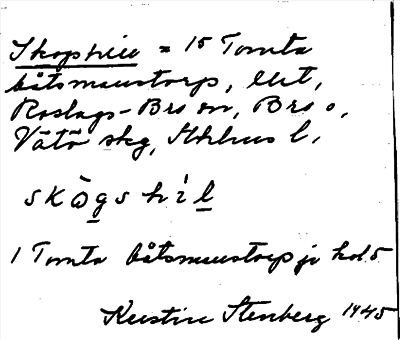 Skoghill = 15 Tomta
båtsmanstorp, lht,
Roslags-Bro sn, Bro o,
Vätö skg, Sthlms l.
skògshìl
1 Tomta båtsmanstorp je kol 5
Kerstin Stenberg 1945